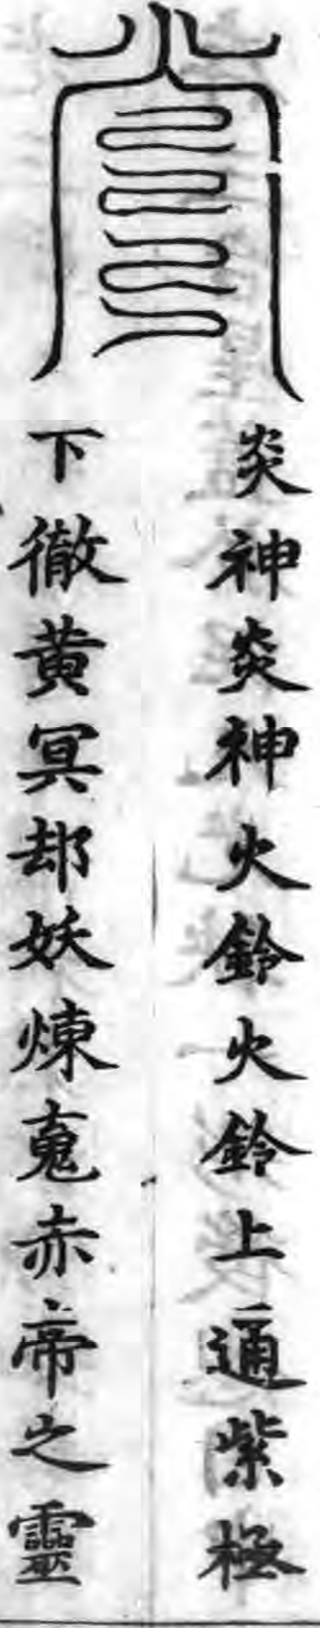 炎神炎神火鈴火鈴上通紫極
下徹黄冥却妖煉䰟赤帝之靈